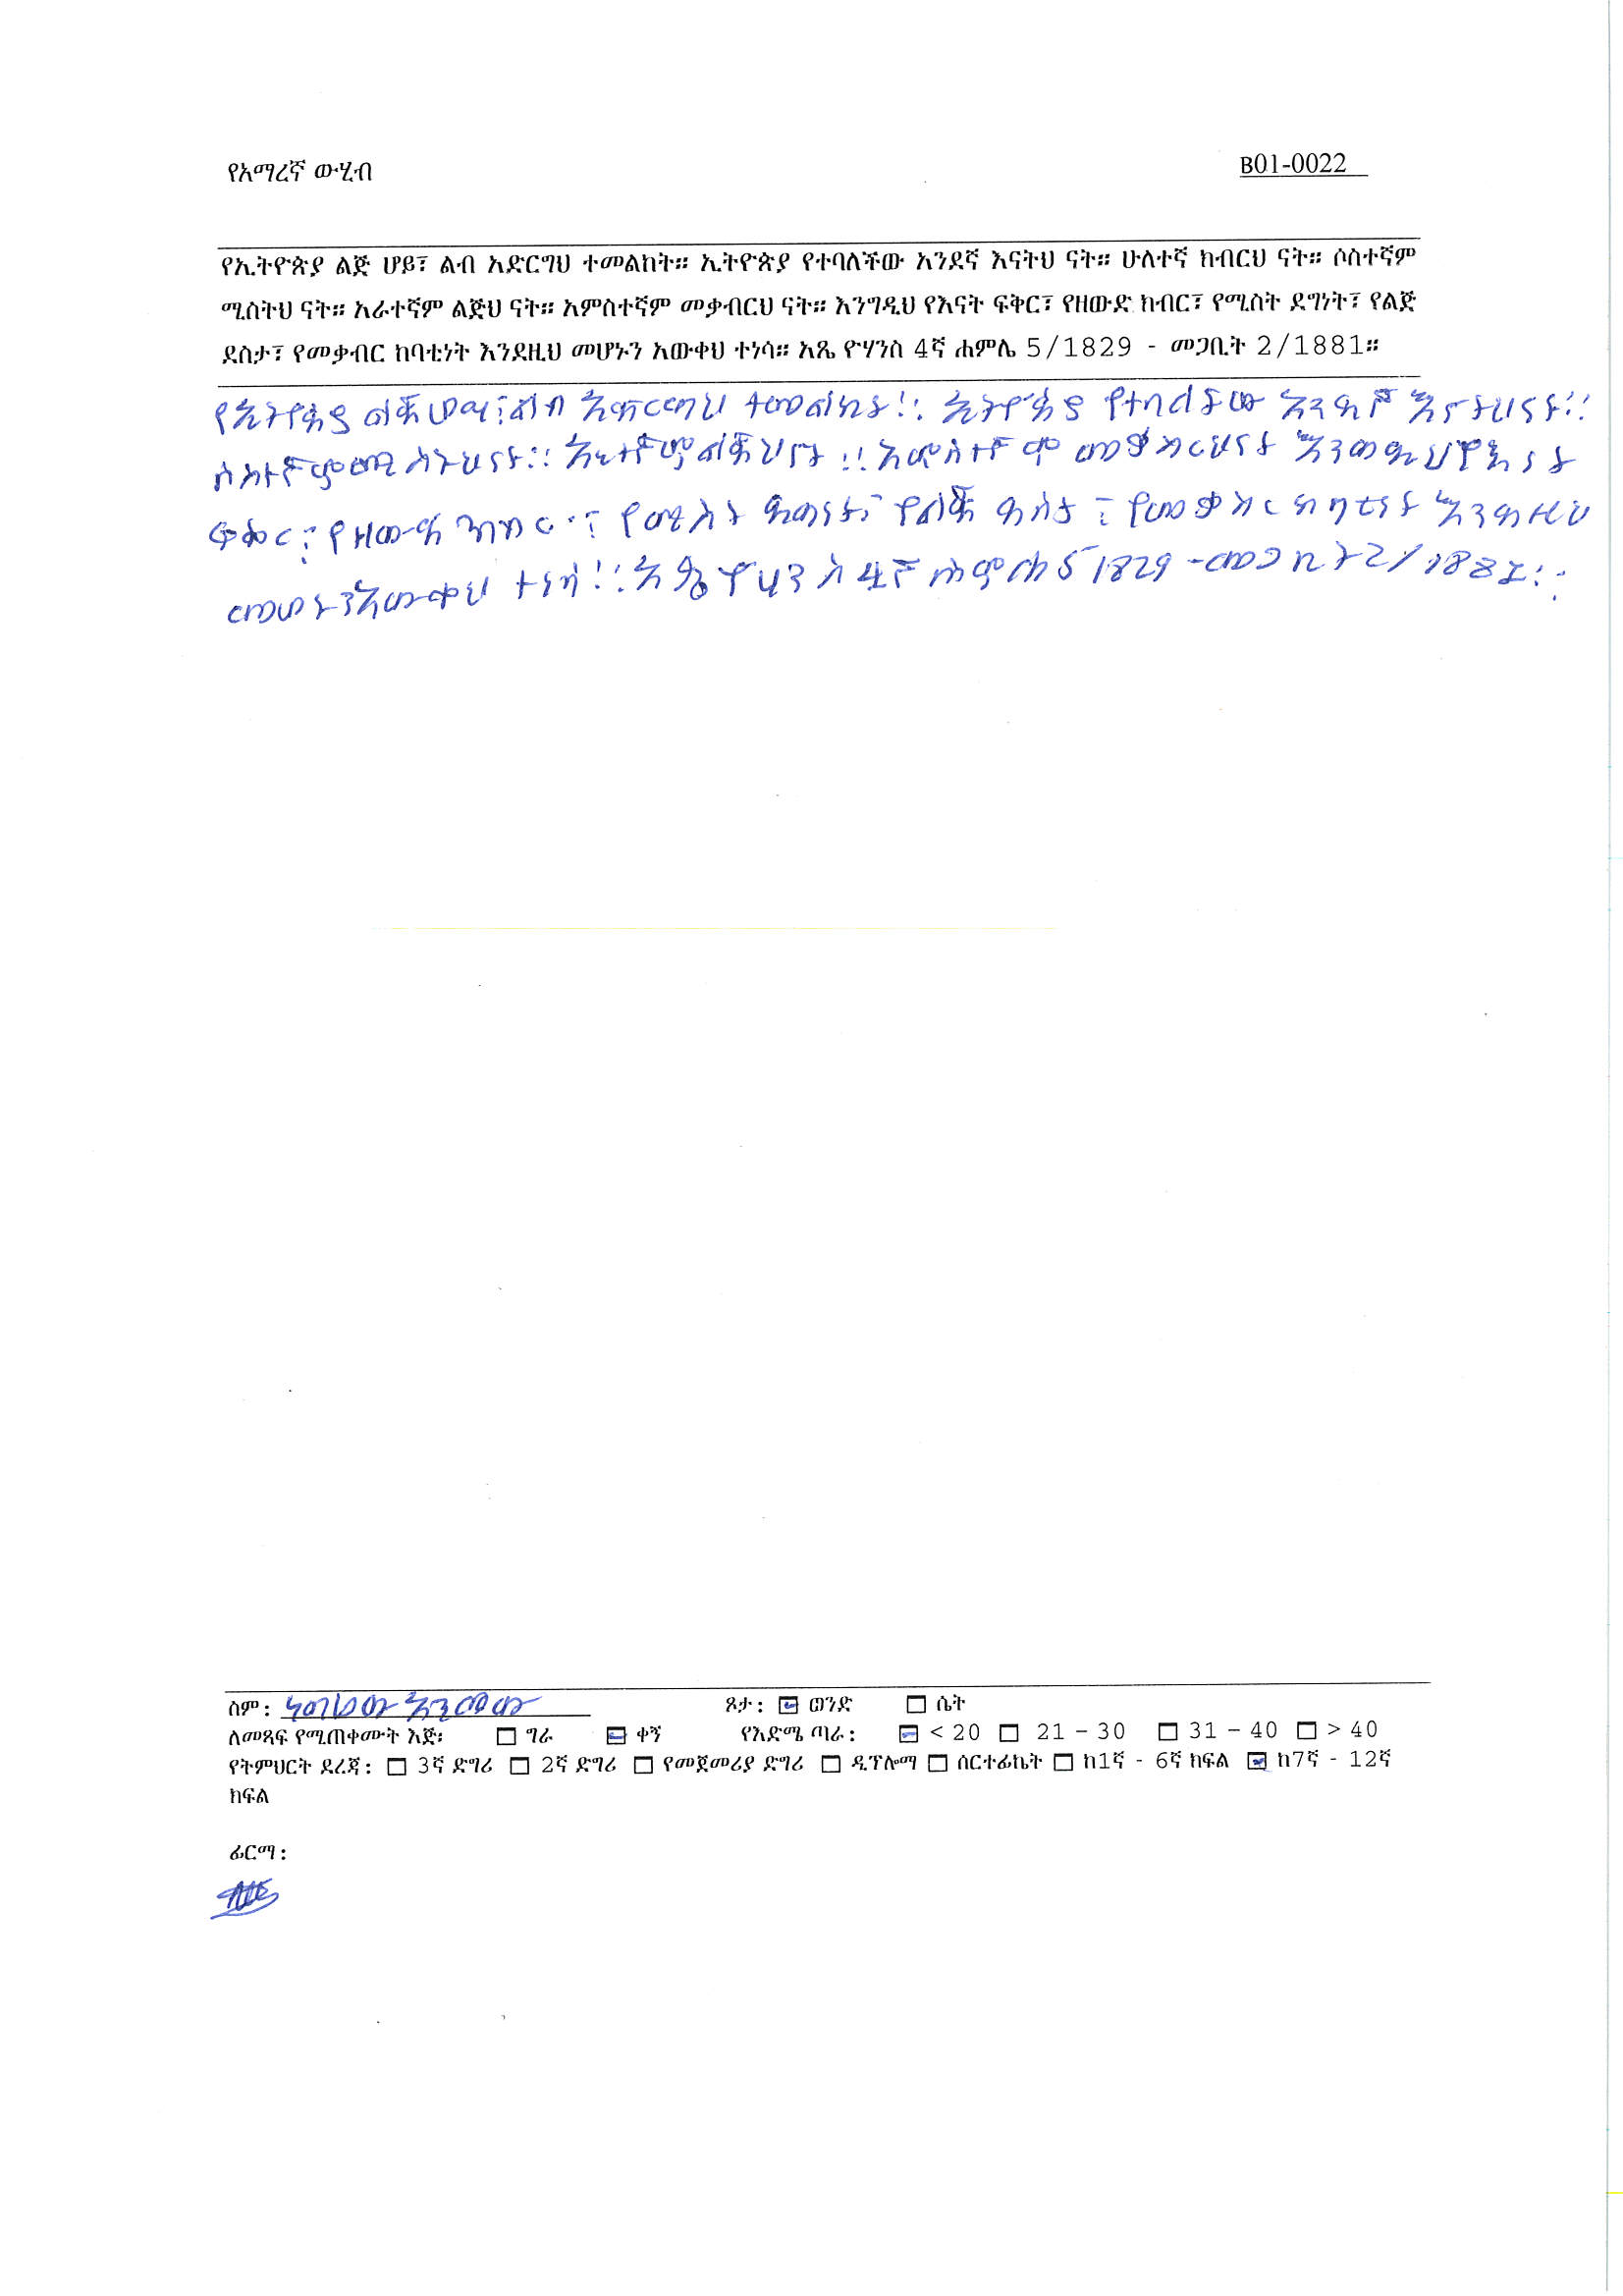 የአማረኛ ውሂብ B01-0022
የኢትዮጵያ ልጅ ሆይ፣ ልብ አድርግህ ተመልከት። ኢትዮጵያ የተባለችው አንደኛ እናትህ ናት። ሁለተኛ ክብርህ ናት። ሶስተኛም
ሚስትህ ናት። አራተኛም ልጅህ ናት። አምስተኛም መቃብርህ ናት። እንግዲህ የእናት ፍቅር፣ የዘውድ ክብር፣ የሚስት ደግነት፣ የልጅ
ደስታ፣ የመቃብር ከባቲነት እንደዚህ መሆኑን አውቀህ ተነሳ። አጼ ዮሃንስ 4ኛ ሐምሌ 5/1829 - መጋቢት 2/1881።
የኢትዮጵያ ልጅ ሆይ፣ ልብ አድርገህ ተመልከት። ኢትዮጵያ የተባለችው አንደኛ እናትህ ናት።
ሶስተኛም ሚስትህ ናት። አራተኛም ልጅህ ናት። አምስተኛም መቃብርህ ናት እንግዲህ የእናት
ፍቅር፣ የዘውድ ክብር፣ የሚስት ደግነት፣ የልጅ ደስታ፣ የመቃብር ከባቲነት እንደዚህ
መሆኑን አውቀህ ተነሳ። አጼ ዮሃንስ ፬ኛ ሐምሌ 5/1829 - መጋቢት 2/1881።
ስም: ጾታ: ወንድ ሴት
ለመጻፍ የሚጠቀሙት እጅ፡ ግራ ቀኝ የእድሜ ጣራ: < 20 21 – 30 31 – 40 > 40
የትምህርት ደረጃ: 3ኛ ድግሪ 2ኛ ድግሪ የመጀመሪያ ድግሪ ዲፕሎማ ሰርተፊኬት ከ1ኛ - 6ኛ ክፍል ከ7ኛ - 12ኛ
ክፍል
ፊርማ: